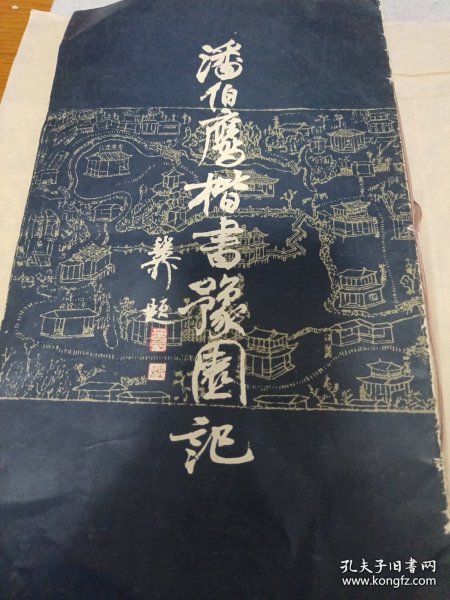 潘伯鹰楷书豫園记
孔夫子旧书网
www.kongfz.com